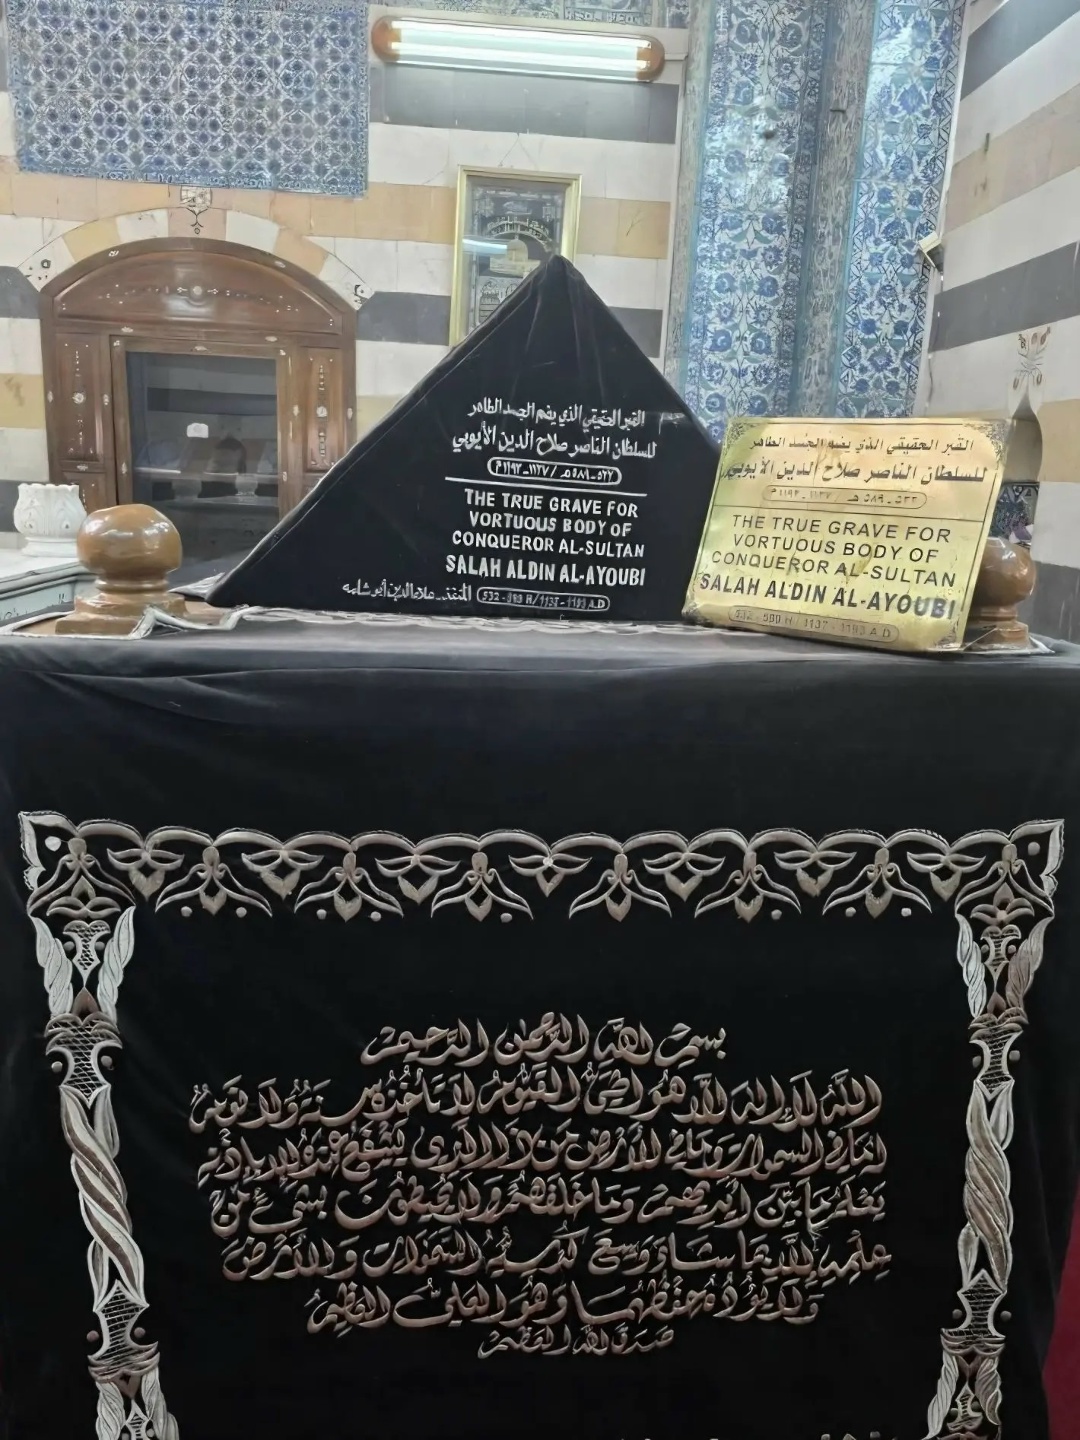 القبر الحقيقي الذي يضم الجسد الطاهر
للسلطان الناصر صلاح الدين الأيوبي
٥٣٢-٥٨٩هـ / ١١٣٧-١١٩٣م
THE TRUE GRAVE FOR
VORTUOUS BODY OF
CONQUEROR AL-SULTAN
SALAH ALDIN AL-AYOUBI
532 - 589 H / 1137 - 1193 A.D
المنفذ علاء الدين أبو شامه
القبر الحقيقي الذي يضم الجسد الطاهر
للسلطان الناصر صلاح الدين الأيوبي
٥٣٢ - ٥٨٩ هـ / ١١٣٧ - ١١٩٣ م
THE TRUE GRAVE FOR
VORTUOUS BODY OF
CONQUEROR AL-SULTAN
SALAH ALDIN AL-AYOUBI
532 - 589 H / 1137 - 1193 A.D
بسم الله الرحمن الرحيم
الله لا إله إلا هو الحي القيوم لا تأخذه سنة ولا نوم له
ما في السموات وما في الأرض من ذا الذي يشفع عنده إلا بإذنه
يعلم ما بين أيديهم وما خلفهم ولا يحيطون بشيء من
علمه إلا بما شاء وسع كرسيه السموات والأرض
ولا يؤده حفظهما وهو العلي العظيم
صدق الله العظيم